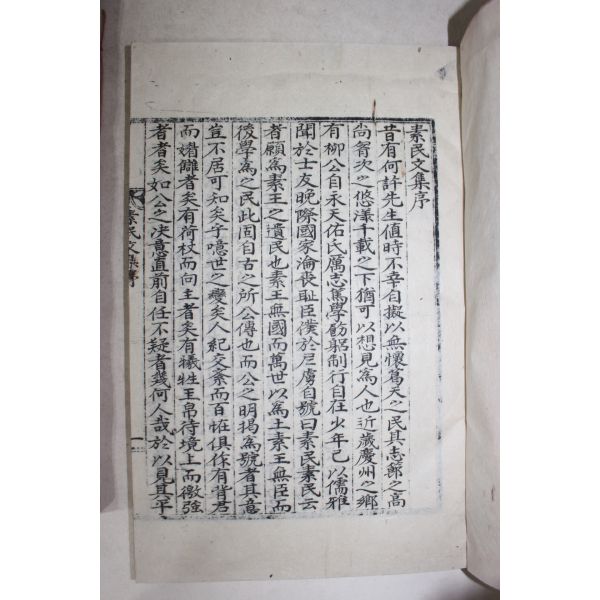 素民文集序
昔有何許先生值時不辛自擬以無懷葛天之民其志節之高
尙胷次之悠漾千載之下猶可以想見爲人也近歲慶州之鄉
有柳公自永天佑氏厲志篤學飭躬制行自在少年已以儒雅
聞於士友晩際國家淪喪耻臣僕於尼虜自號曰素民素民云
者願爲素王之遺民也素王無國而萬世以爲土素王無臣而
後學爲之民此固自古之所公傳也而公之明揭爲號者其意
豈不居可知矣乎噫世之變矣人紀交紊而百怪俱作有背君
而媎讎者矣有荷杖而向主者矣有犧牲玉帛待境上而徼强
者者矣如公之決意直前自任不疑者幾何人哉於以見其平
素民文集序
一